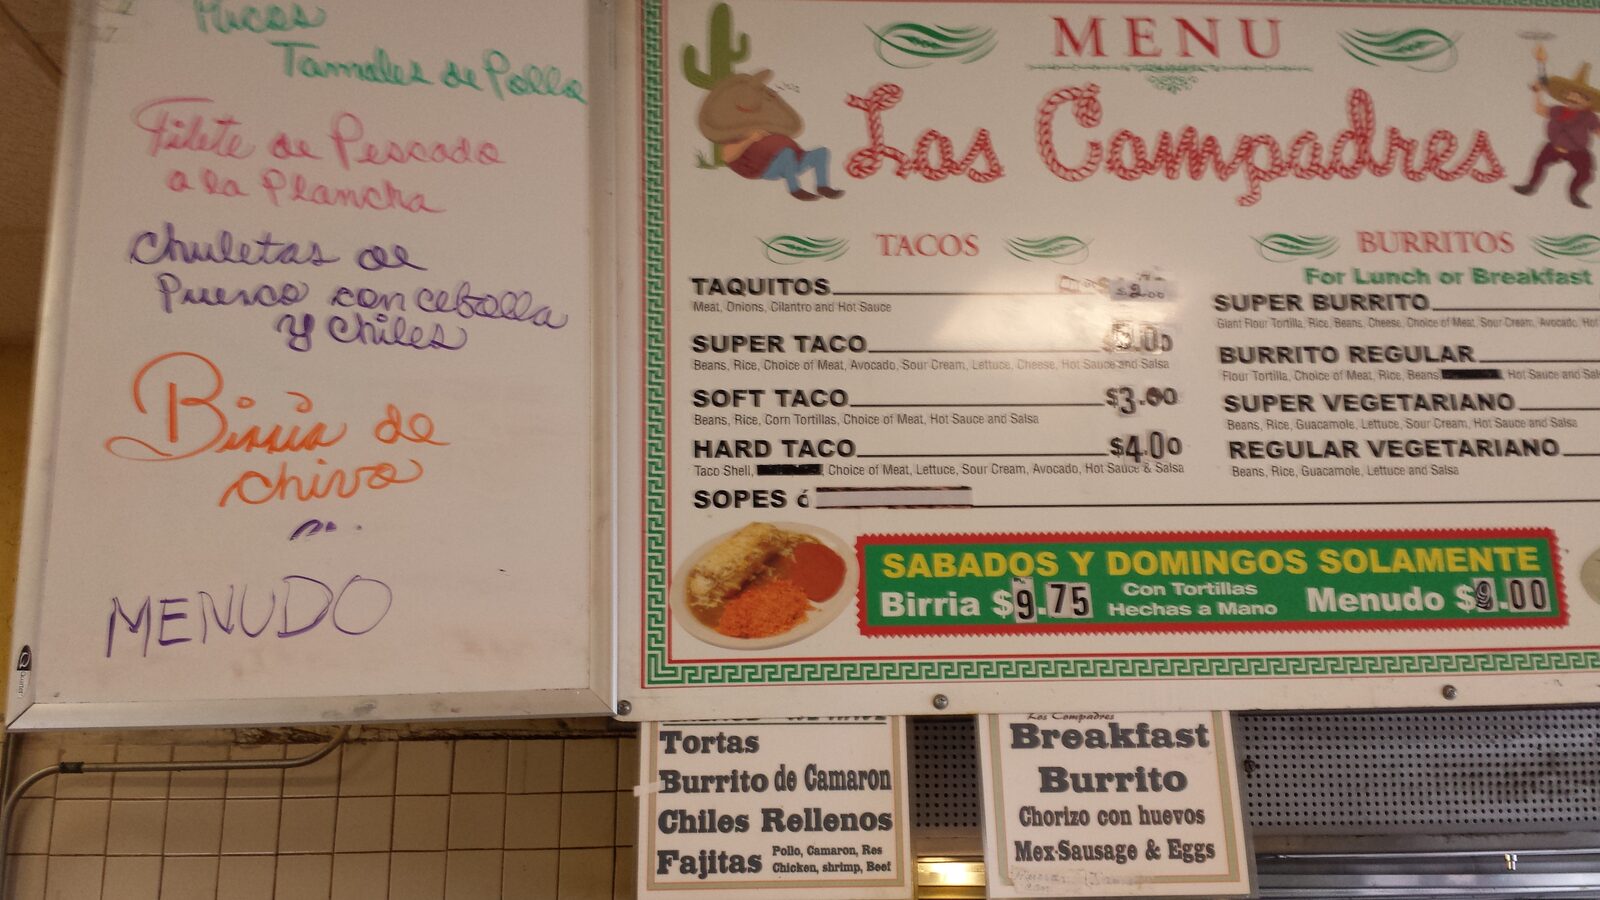 Tamales de Pollo
Filete de Pescado
a la Plancha
Chuletas de
Puerco con cebolla
y Chiles
Birria de
chivo
MENUDO
MENU
Los Compadres
TACOS
TAQUITOS $2.00
Meat, Onions, Cilantro and Hot Sauce
SUPER TACO $5.00
Beans, Rice, Choice of Meat, Avocado, Sour Cream, Lettuce, Cheese, Hot Sauce and Salsa
SOFT TACO $3.00
Beans, Rice, Corn Tortillas, Choice of Meat, Hot Sauce and Salsa
HARD TACO $4.00
Taco Shell, , Choice of Meat, Lettuce, Sour Cream, Avocado, Hot Sauce & Salsa
SOPES ó
BURRITOS
For Lunch or Breakfast
SUPER BURRITO
Giant Flour Tortilla, Rice, Beans, Cheese, Choice of Meat, Sour Cream, Avocado, Hot
BURRITO REGULAR
Flour Tortilla, Choice of Meat, Rice, Beans , Hot Sauce and Sal
SUPER VEGETARIANO
Beans, Rice, Guacamole, Lettuce, Sour Cream, Hot Sauce and Salsa
REGULAR VEGETARIANO
Beans, Rice, Guacamole, Lettuce and Salsa
SABADOS Y DOMINGOS SOLAMENTE
Birria $9.75 Con Tortillas Hechas a Mano Menudo $9.00
Tortas
Burrito de Camaron
Chiles Rellenos
Fajitas Pollo, Camaron, Res
Chicken, shrimp, Beef
Los Compadres
Breakfast
Burrito
Chorizo con huevos
Mex-Sausage & Eggs